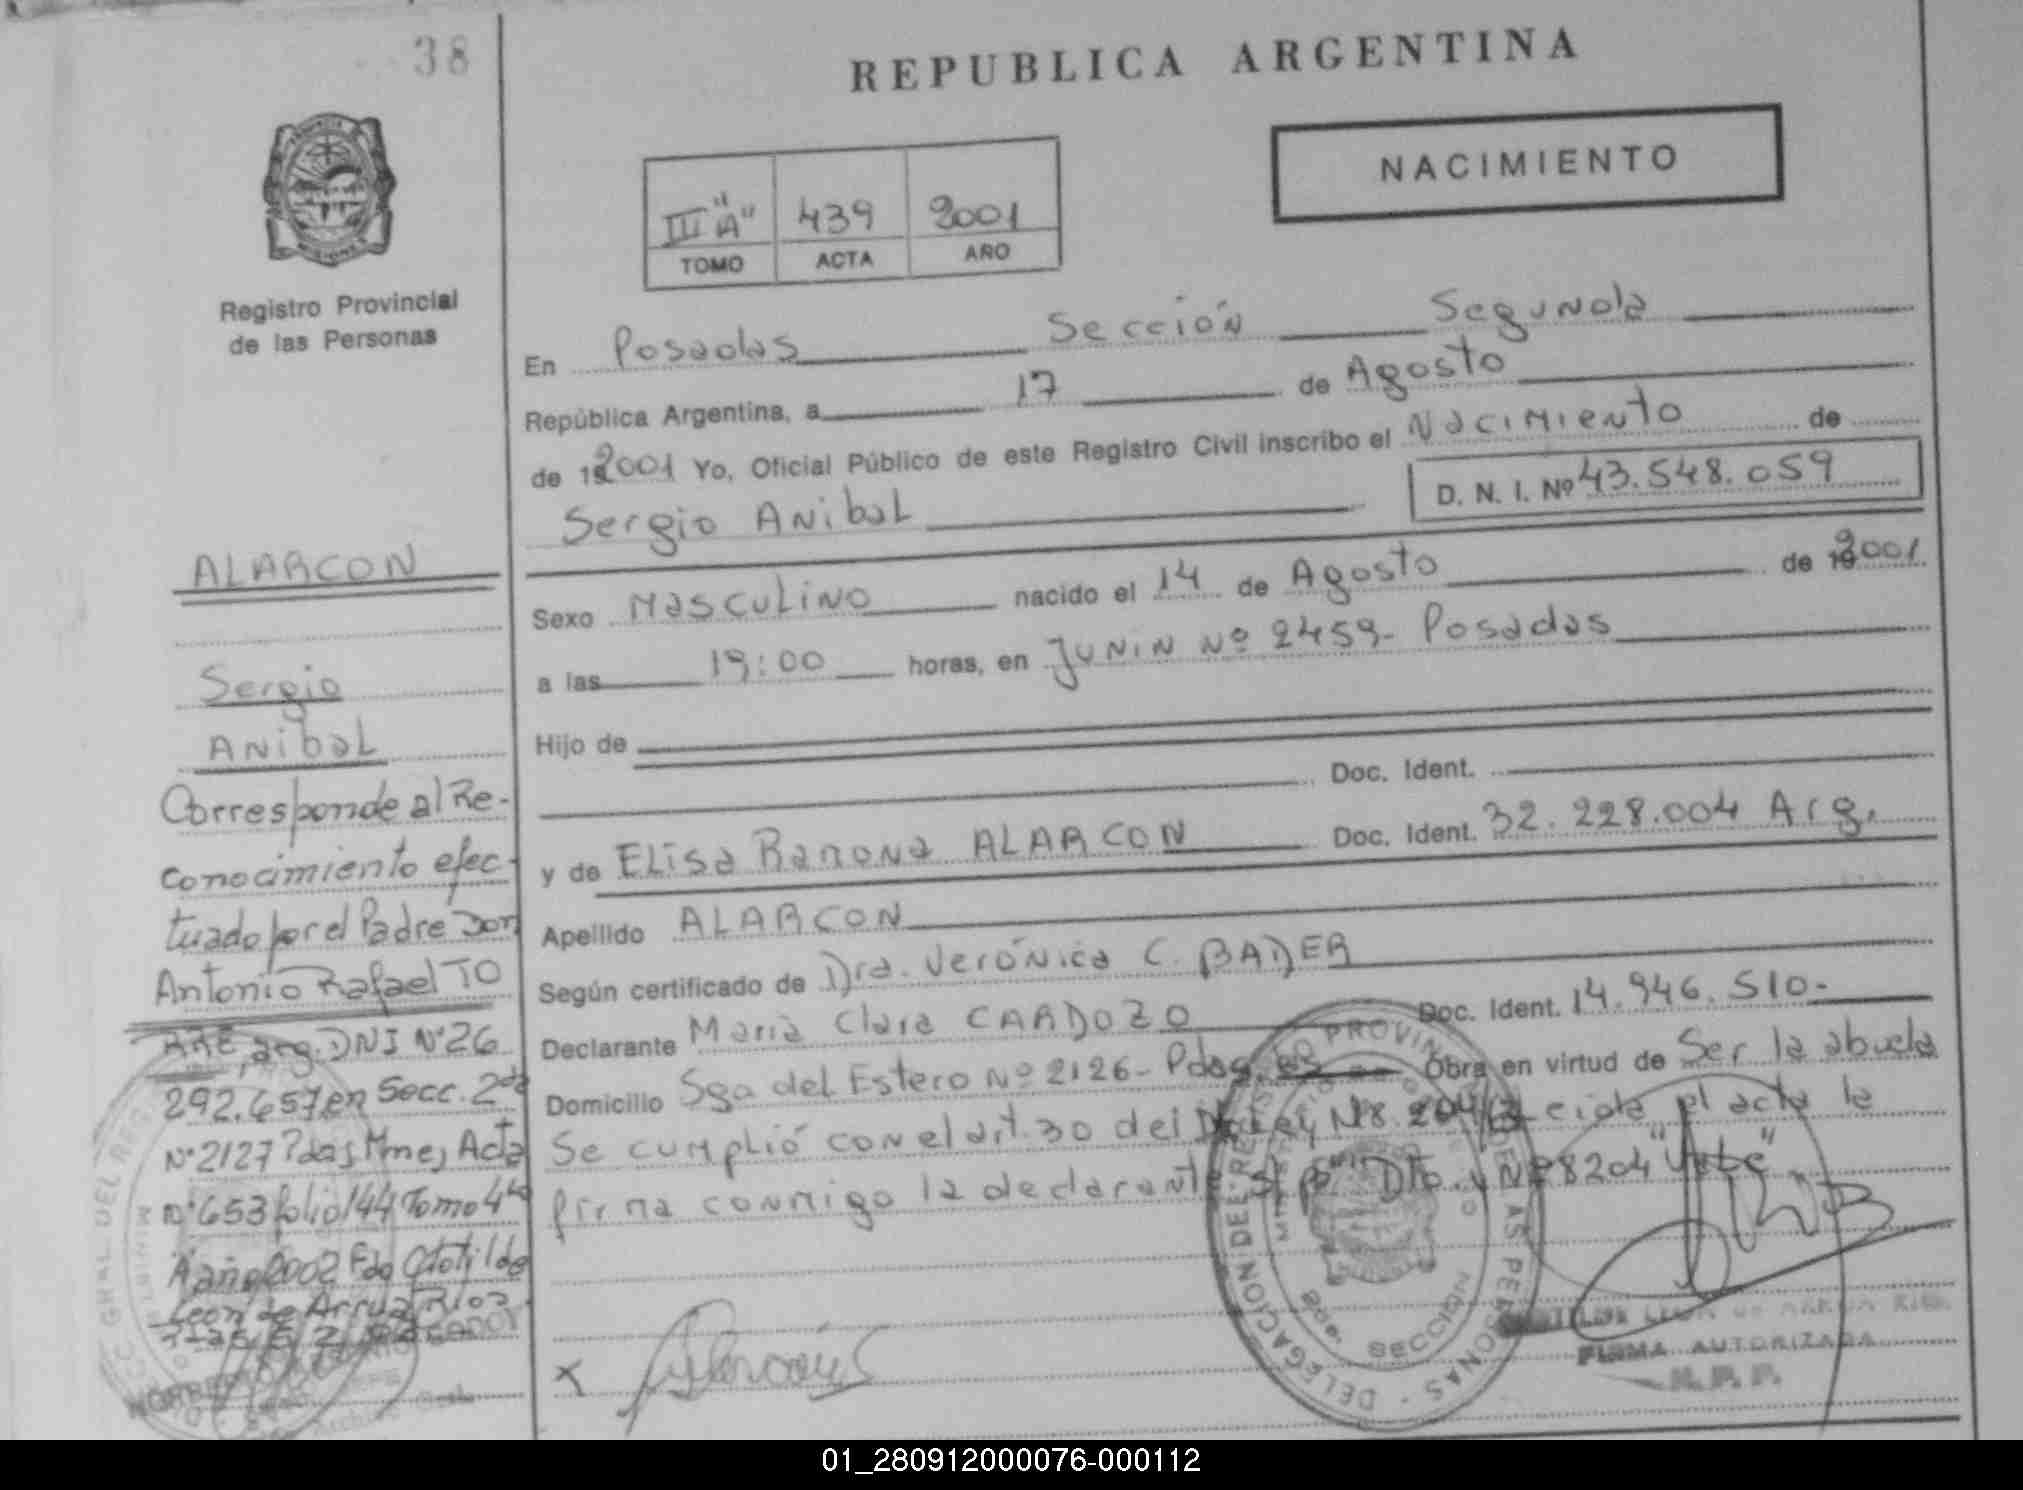 38
REPUBLICA ARGENTINA
NACIMIENTO
III "A" 439 2001
TOMO ACTA AÑO
Registro Provincial
de las Personas
En Posadas Sección Segunda
República Argentina, a 17 de Agosto
de 192001 Yo, Oficial Público de este Registro Civil inscribo el Nacimiento de
Sergio Anibal D. N. I. Nº 43.548.059
Sexo Masculino nacido el 14 de Agosto de 192001
a las 19:00 horas, en Junin Nº 2459- Posadas
Hijo de
Doc. Ident.
y de Elisa Ramona ALARCON Doc. Ident. 32.228.004 Arg.
Apellido ALARCON
Según certificado de Dra. Verónica C. BADER
Declarante Maria Clara CARDOZO Doc. Ident. 14.946.510-
Domicilio Sgo del Estero Nº 2126- Pdas. Obra en virtud de Ser la abuela
Se cumplió con el art. 30 del el acta la
firma conmigo la declarante Nº 8204 "Vale"
ALARCON
Sergio
Anibal
Corresponde al Re-
conocimiento efec-
tuado por el Padre Don
Antonio Rafael TO
RRE, arg. DNI Nº 26
292.657 en Secc. 2da
Nº 2127 Pdas Mnes Acta
Nº 653 folio 144 Tomo 4to
A año 2002 Fdo Clotilde
Leon de Arrua Rios
X
DELEGACION DE REGISTRO PROVINCIAL DE LAS PERSONAS
SECCION
CLOTILDE LEON de ARRUA RIOS
FIRMA AUTORIZADA
R. P. P.
01_280912000076-000112